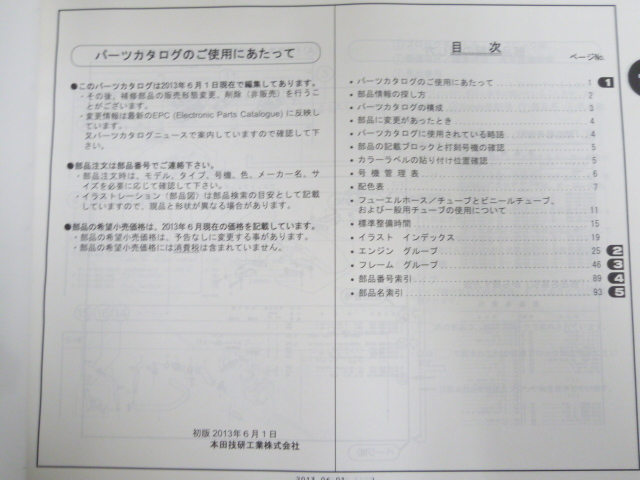 パーツカタログのご使用にあたって
●このパーツカタログは2013年6月1日現在で編集してあります。
・その後、補修部品の販売形態変更、削除（非販売）を行うこ
とがございます。
・変更情報は最新のEPC (Electronic Parts Catalogue) に反映し
ています。
又パーツカタログニュースで案内していますので確認して下
さい。
●部品注文は部品番号でご連絡下さい。
・部品注文時は、モデル、タイプ、号機、色、メーカー名、サ
イズを必要に応じて確認して下さい。
・イラストレーション（部品図）は部品検索の目安として記載
していますので、現品と形状が異なる場合があります。
●部品の希望小売価格は、2013年6月現在の価格を記載しています。
・部品の希望小売価格は、予告なしに変更する事があります。
・部品の希望小売価格には消費税は含まれていません。
初版2013年6月1日
本田技研工業株式会社
目 次
ページNo.
・パーツカタログのご使用にあたって 1 1
・部品情報の探し方 2
・パーツカタログの構成 3
・部品に変更があったとき 4
・パーツカタログに使用されている略語 4
・部品の記載ブロックと打刻号機の確認 5
・カラーラベルの貼り付け位置確認 5
・号 機 管 理 表 6
・配色表 7
・フューエルホース／チューブとビニールチューブ、
および一般用チューブの使用について 11
・標準整備時間 15
・イラスト インデックス 19
・エンジン グループ 25 2
・フレーム グループ 46 3
・部品番号索引 89 4
・部品名索引 93 5